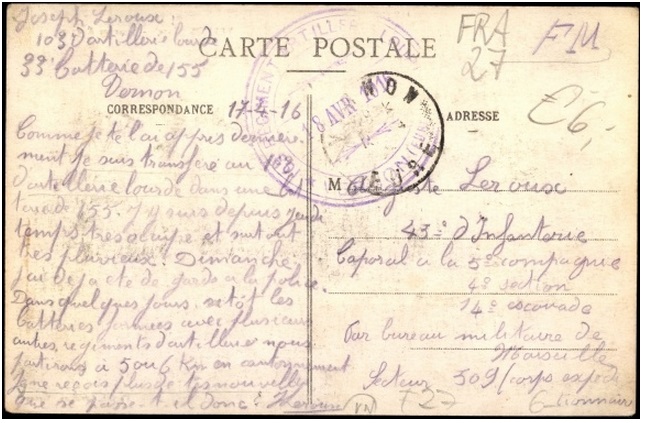 Joseph Leroux
103 d'artillerie lourde
33e batterie de 155
Vernon
CARTE POSTALE
FRA
27
FM
£6,-
CORRESPONDANCE 17-4-16
ADRESSE
8 AVR
EURE
Comme je te l'ai appris dernière
ment je suis transféré au 103
d'artillerie lourde dans une bat
de 155. J'y suis depuis
temps très occupé et surtout
très pluvieux. Dimanche
j'ai de garde à la police
Dans quelques jours sitôt les
batteries formées avec plusieurs
autres régiments d'artillerie nous
partirons à 5 ou 6 Km en cantonnement
Je ne reçois plus de tes nouvelles
que se passe t-il donc? Leroux
M Auguste Leroux
43e d'Infanterie
Caporal à la 5e compagnie
4e section
14e escouade
Par bureau militaire de
Marseille
Secteur 509 (corps expédi
tionnaire
F27